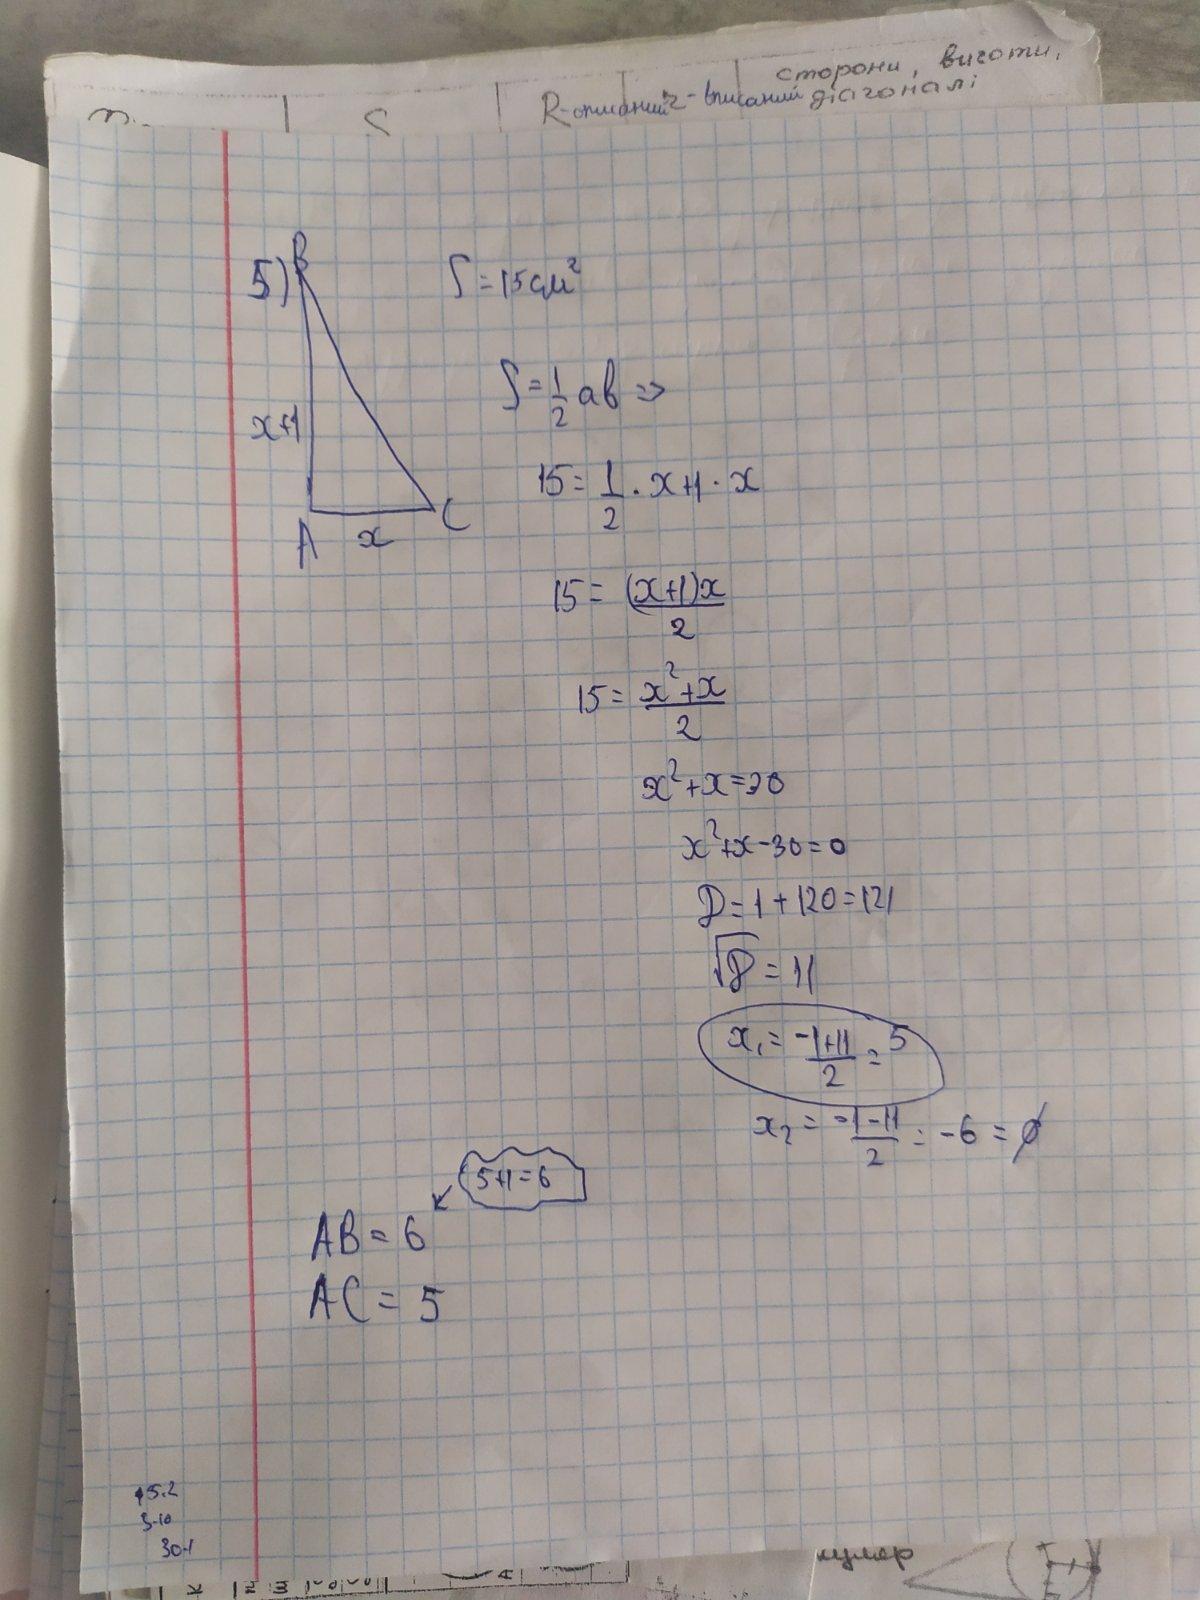 сторони, висоти,
R-описаний r-вписаний діагоналі
S
5)
B
S=15см²
x+1
S=1/2 ab =>
A x C
15=1/2 · x+1 · x
15=(x+1)x/2
15=x²+x/2
x²+x=30
x²+x-30=0
D=1+120=121
√D=11
x₁=-1+11/2=5
x₂=-1-11/2=-6=∅
5+1=6
AB=6
AC=5
15·2
3·10
30·1